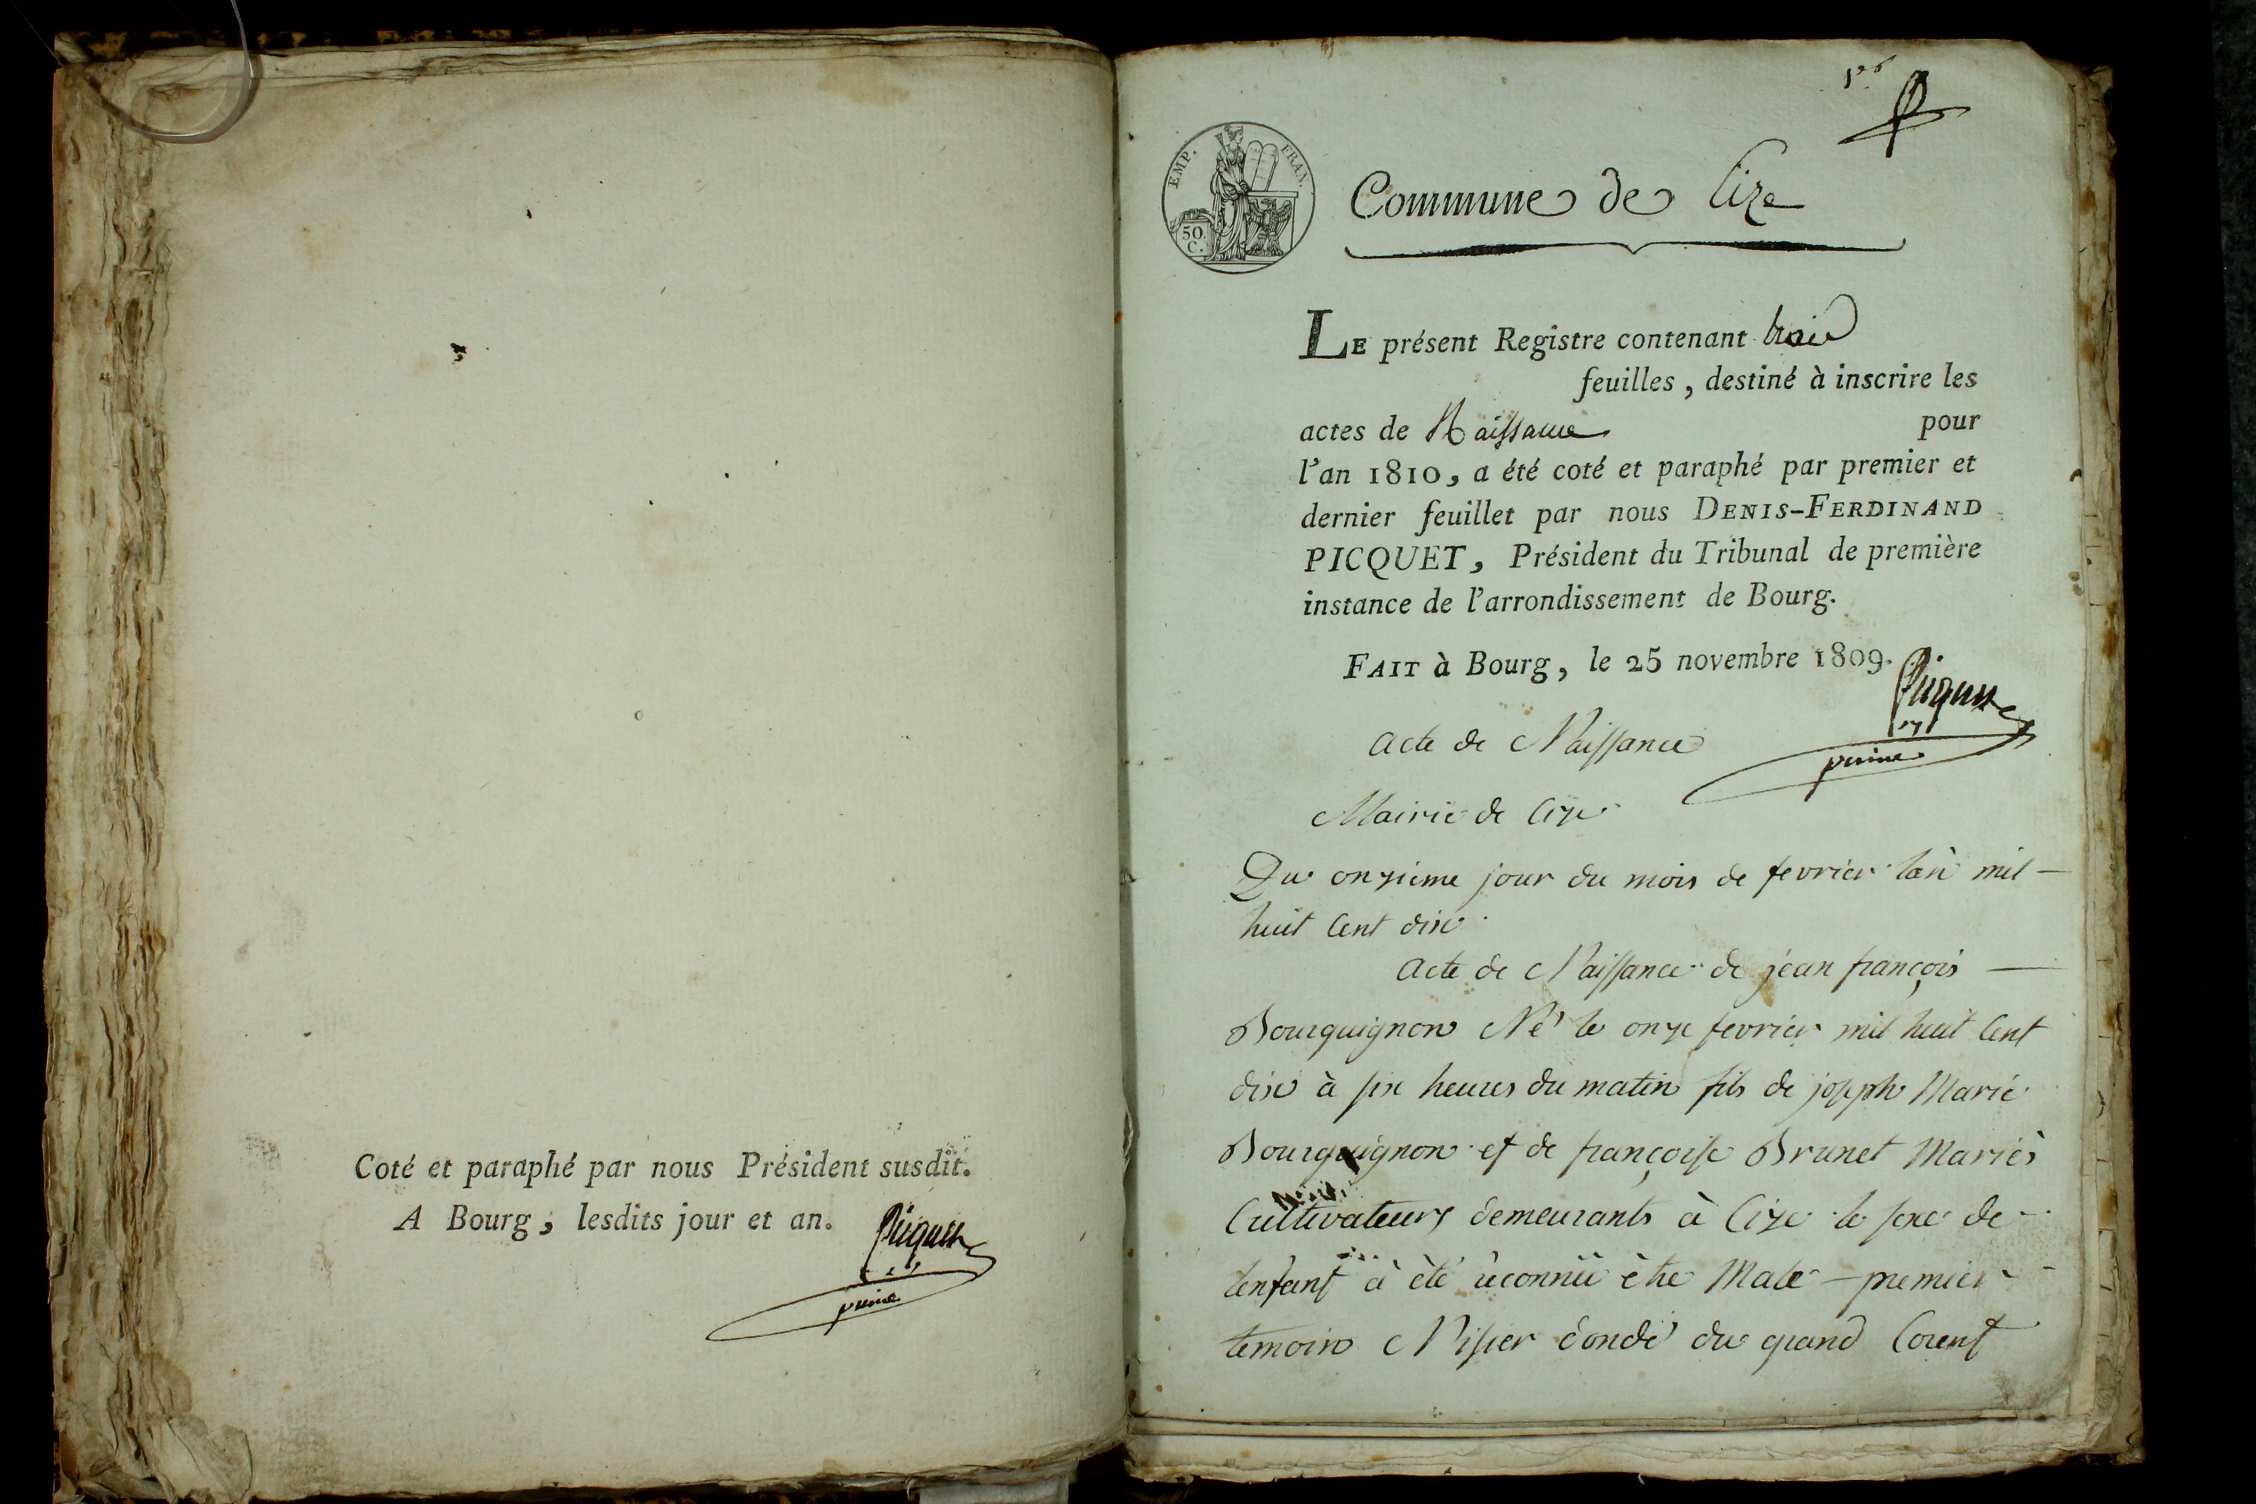 Coté et paraphé par nous Président susdit.
A Bourg, lesdits jour et an.
Picquet
EMP. FRAN.
50.
C.
Commune de Cize
LE présent Registre contenant trois
feuilles, destiné à inscrire les
actes de Naissance pour
l'an 1810, a été coté et paraphé par premier et
dernier feuillet par nous DENIS-FERDINAND
PICQUET, Président du Tribunal de première
instance de l'arrondissement de Bourg.
FAIT à Bourg, le 25 novembre 1809.
Picquet
acte de Naissance
Mairie de Cize
Du onzieme jour du mois de fevrier l'an mil
huit Cent dix
acte de Naissance de jean françois
Bourquignon Né le onze fevrier mil huit Cent
dix à six heures du matin fils de joseph Marie
Bourquignon et de françoise Brunet Mariés
Cultivateurs demeurants à Cize le sexe de
lenfant à èté reconnü ètre Male premier
temoin Nisier dondé du grand Corent